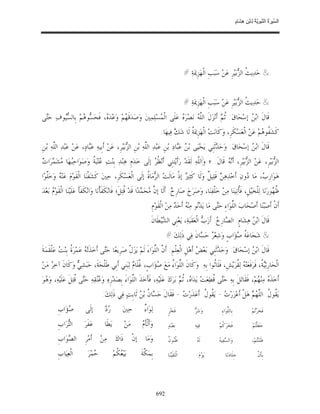 السِّيرَةُ النَّبَوِيَّةُ لِابْنِ هِشَامٍ
حَدِيثُ الزُّبَيْرِ عَنْ سَبَبِ الْهَزِيمَةِ
حَدِيثُ الزُّبَيْرِ عَنْ سَبَبِ الْهَزِيمَةِ
قَالَ ابْنُ إسْحَاقَ: ثُمَّ أَنْزَلَ اللَّهُ نَصْرَهُ عَلَى الْمُسْلِمِينَ وَصَدَقَهُمْ وَعْدَهُ، فَحَسُّوهُمْ بِالسُّيُوفِ حَتَّى
كَشَفُوهُمْ عَنْ الْعَسْكَرِ، وَكَانَتْ الْهَزِيمَةُ لَا شَكَّ فِيهَا.
قَالَ ابْنُ إسْحَاقَ: وَحَدَّثَنِي يَحْيَى بْنُ عَبَّادِ بْنِ عَبْدِ اللَّهِ بْنِ الزُّبَيْرِ، عَنْ أَبِيهِ عَبَّادٍ، عَنْ عَبْدِ اللَّهِ بْنِ
الزُّبَيْرِ، عَنْ الزُّبَيْرِ، أَنَّهُ قَالَ: «وَاَللَّهِ لَقَدْ رَأَيْتُنِي أَنْظُرُ إلَى خَدَمِ هِنْدِ بِنْتِ عُتْبَةَ وَصَوَاحِبُهَا مُشَمِّرَاتٌ
هَوَارِبُ، مَا دُونَ أَخْذِهِنَّ قَلِيلٌ وَلَا كَثِيرٌ إذْ مَالَتْ الرُّمَاةُ إلَى الْعَسْكَرِ، حِينَ كَشَفْنَا الْقَوْمَ عَنْهُ وَخَلَّوْا
ظُهُورَنَا لِلْخَيْلِ، فَأُتِينَا مِنْ خَلْفِنَا، وَصَرَخَ صَارِخٌ: أَلَا إنَّ مُحَمَّدًا قَدْ قُتِلَ؛ فَانْكَفَأْنَا وَانْكَفَأَ عَلَيْنَا الْقَوْمُ بَعْدَ
أَنْ أَصَبْنَا أَصْحَابَ اللِّوَاءِ حَتَّى مَا يَدْنُو مِنْهُ أَحَدٌ مِنْ الْقَوْمِ
قَالَ ابْنُ هِشَامٍ: الصَّارِخُ: أَزَبُّ الْعَقَبَةِ، يَعْنِي الشَّيْطَانَ
شَجَاعَةُ صُؤَابٍ وَشِعْرُ حَسَّانَ فِي ذَلِكَ
قَالَ ابْنُ إسْحَاقَ: وَحَدَّثَنِي بَعْضُ أَهْلِ الْعِلْمِ: أَنَّ اللِّوَاءَ لَمْ يَزَلْ صَرِيعًا حَتَّى أَخَذَتْهُ عَمْرَةُ بِنْتُ عَلْقَمَةَ
الْحَارِثِيَّةُ، فَرَفَعَتْهُ لِقُرَيْشِ، فَلَاثُوا بِهِ. وَكَانَ اللِّوَاءُ مَعَ صُؤَابٍ، غُلَامٌ لِبَنِي أَبِي طَلْحَةَ، حَبَشِيٌّ وَكَانَ آخِرَ مَنْ
أَخَذَهُ مِنْهُمْ، فَقَاتَلَ بِهِ حَتَّى قُطِعَتْ يَدَاهُ، ثُمَّ بَرَكَ عَلَيْهِ، فَأَخَذَ اللِّوَاءَ بِصَدْرِهِ وَعُنُقِهِ حَتَّى قُتِلَ عَلَيْهِ، وَهُوَ
يَقُولُ: اللَّهُمَّ هَلْ أَعْزَرْتُ - يَقُولُ: أَعْذَرْتُ - فَقَالَ حَسَّانُ بْنُ ثَابِتٍ فِي ذَلِكَ:
فَخَرْتُمْ بِاللِّوَاءِ وَشَرُّ فَخْرٍ لِوَاءٌ حِينَ رُدَّ إلَى صُؤَابِ
جَعَلْتُمْ فَخْرَكُمْ فِيهِ بِعَبْدٍ وَأَلْأَمُ مَنْ يَطَا عَفَرَ التُّرَابِ
ظَنَنْتُمْ، وَالسَّفِيهُ لَهُ ظُنُونُ وَمَا إنْ ذَاكَ مِنْ أَمْرِ الصَّوَابِ
بِأَنَّ جِلَادَنَا يَوْمَ الْتَقَيْنَا بِمَكَّةَ بَيْعُكُمْ حُمْرَ الْعِيَابِ
692